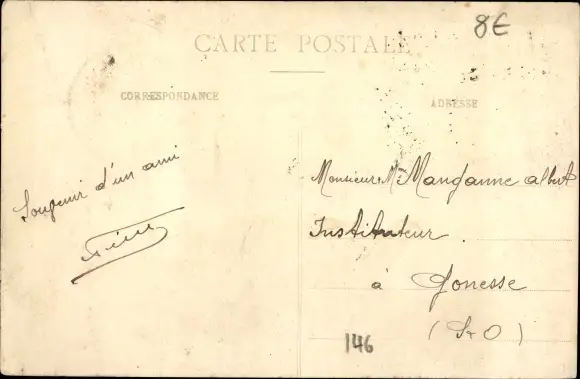 8€
CARTE POSTALE
CORRESPONDANCE
ADRESSE
Souvenir d'un ami
Monsieur Mangamme albert
Instituteur
à Gonesse
(S+O)
146